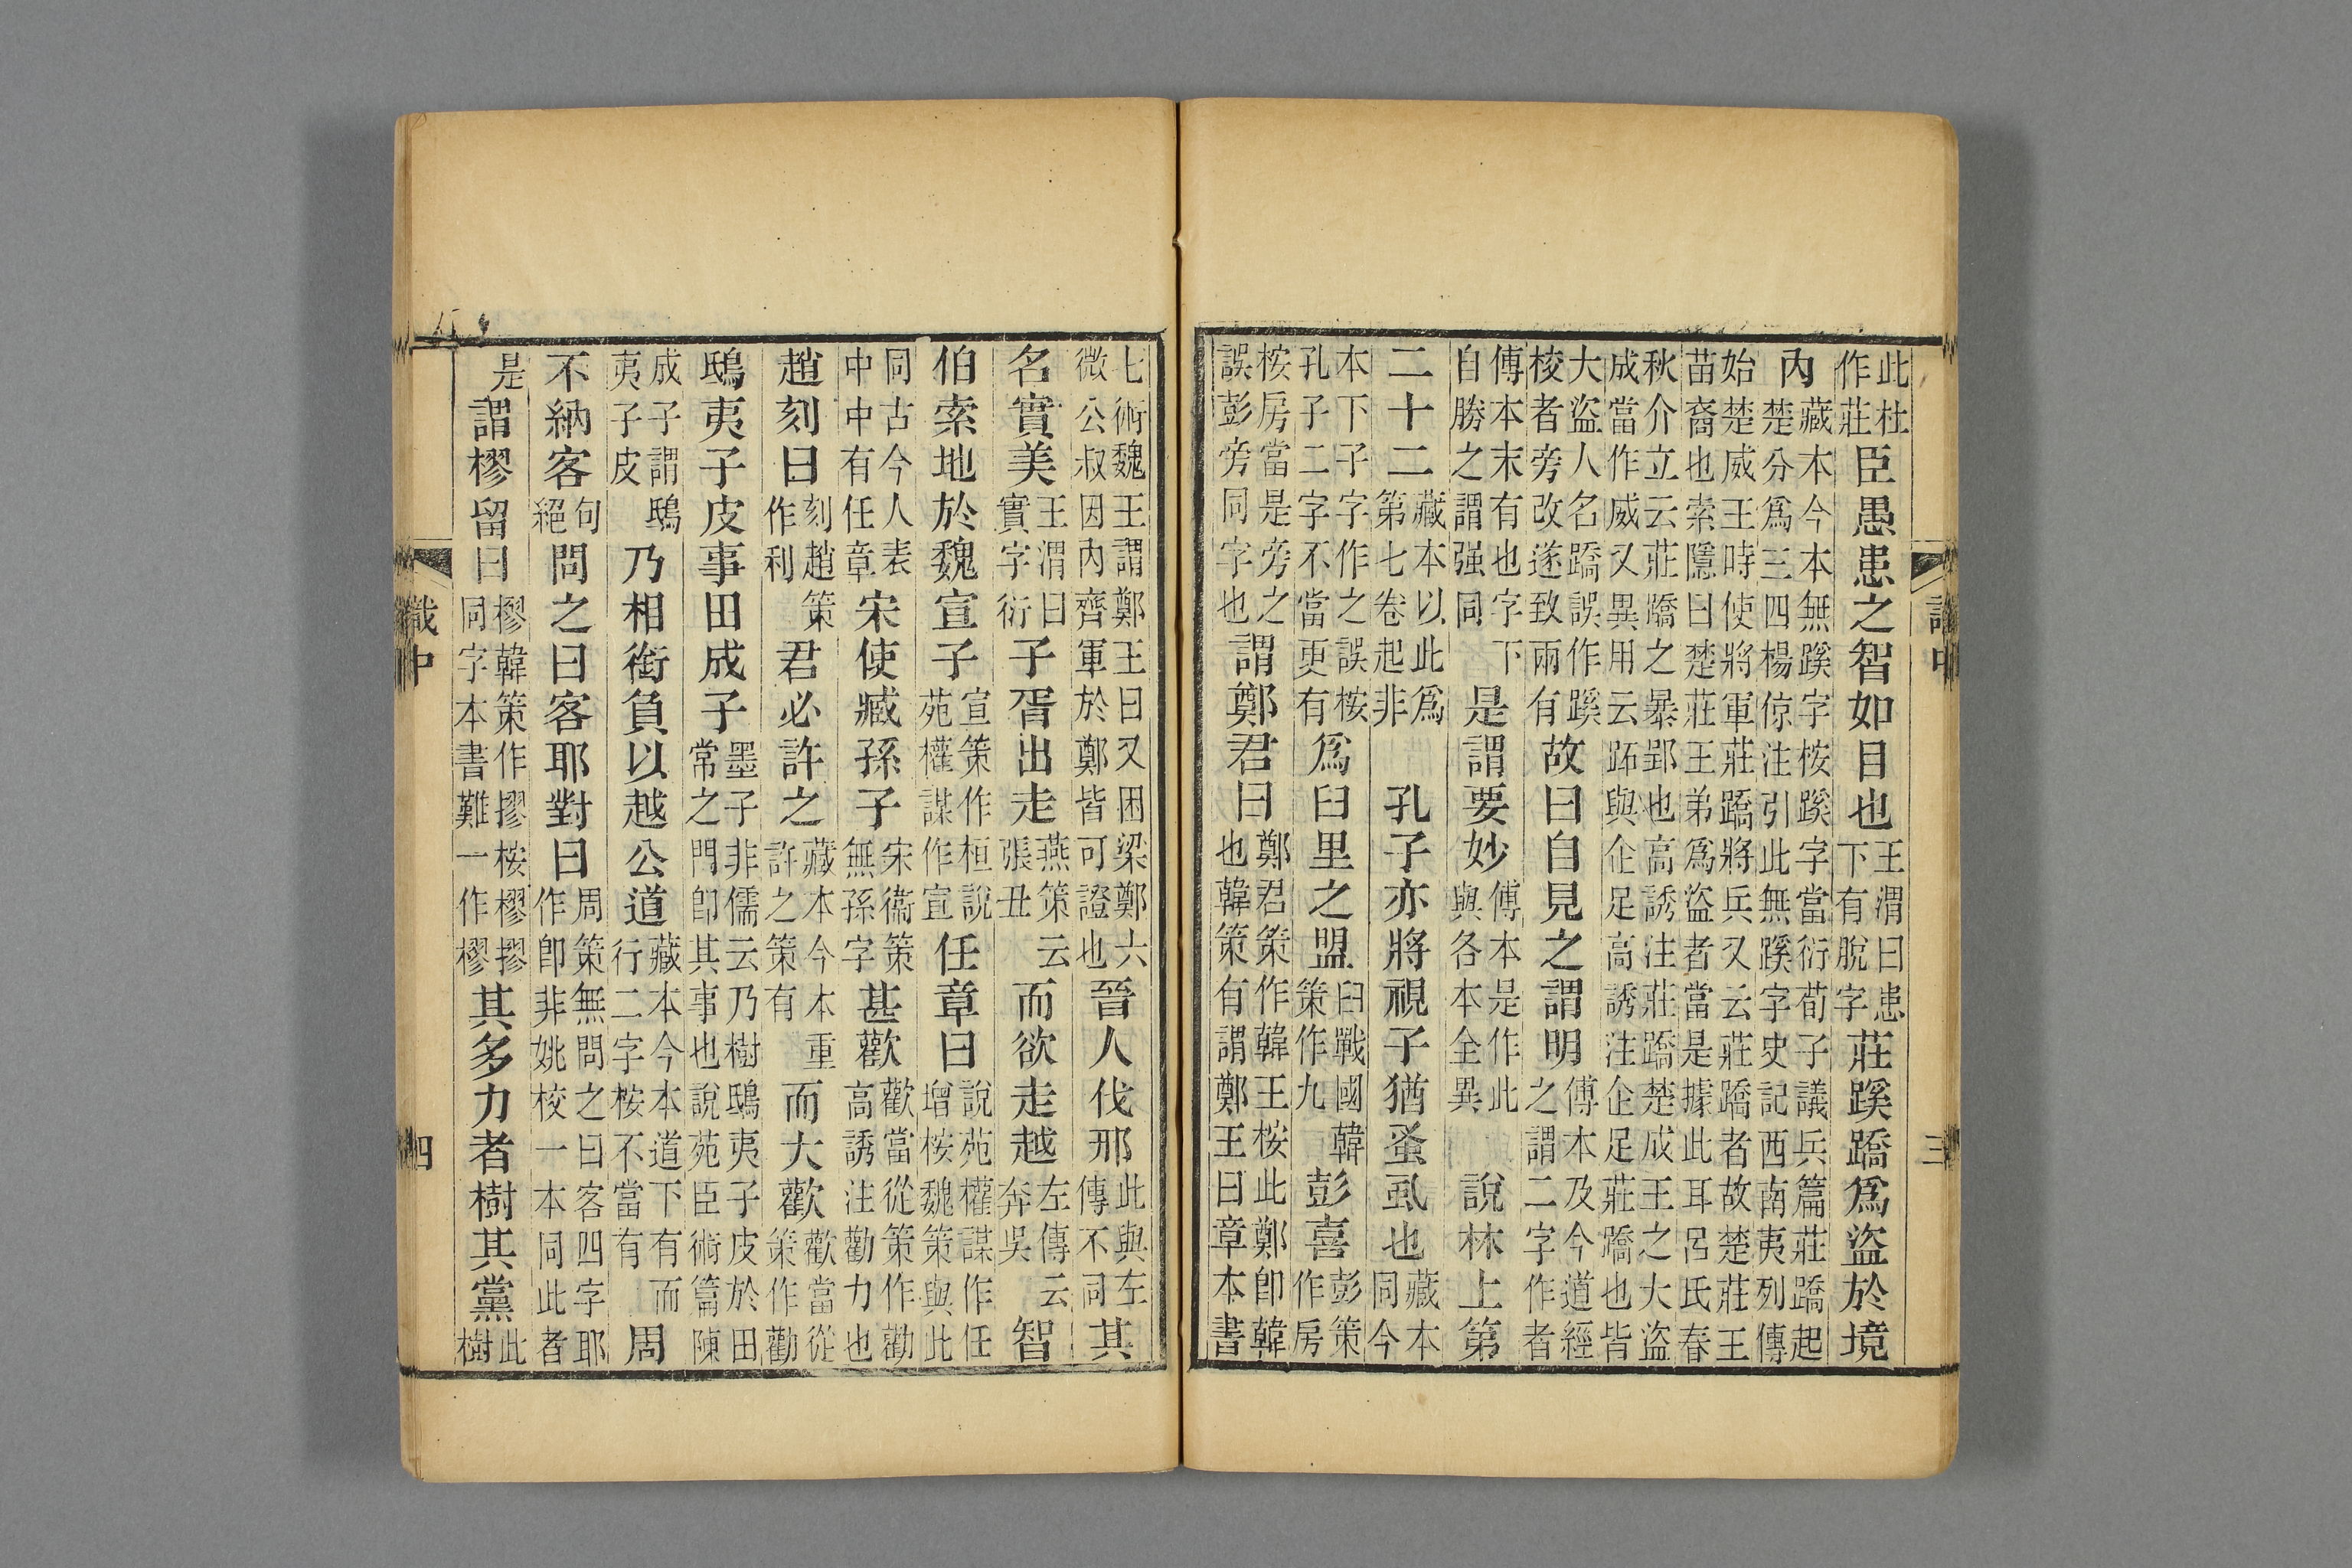 識中 三
此杜作莊臣愚患之智如目也王渭曰患下有脫字莊蹊蹻爲盜於境
內藏本今本無蹊字桉蹊字當衍荀子議兵篇莊蹻起楚分爲三四楊倞注引此無蹊字史記西南夷列傳
始楚威王時使將軍莊蹻將兵又云莊蹻者故楚莊王苗裔也索隱曰楚莊王弟爲盜者當是據此耳呂氏春
秋介立云莊蹻之暴郢也高誘注莊蹻楚成王之大盜成當作威又異用云跖與企足高誘注企足莊蹻也皆
大盜人名蹻誤作蹊棱者旁改遂致兩有故曰自見之謂明傅本及今道經之謂二字作者
傅本末有也字下自勝之謂强同是謂要妙傅本是作此與各本全異說林上第
二十二藏本以此爲第七卷起非孔子亦將視子猶蚤虱也藏本同今
本下子字作之誤桉孔子二字不當更有爲臼里之盟臼戰國韓策作九彭喜彭策作房
桉房當是旁之誤彭旁同字也謂鄭君曰鄭君策作韓王桉此鄭即韓也韓策有謂鄭王曰章本書
七術魏王謂鄭王曰又困梁鄭六微公叔因內齊軍於鄭皆可證也晉人伐邢此與左傳不同其
名實美王渭曰實字衍子胥出走燕策云張丑而欲走越左傳云奔吳智
伯索地於魏宣子宣策作桓說苑權謀作宣任章曰說苑權謀作任增桉魏策與此
同古今人表中中有任章宋使臧孫子宋衞策無孫字甚歡歡當從策作勸高誘注勸力也
趙刻曰刻趙策作利君必許之藏本今本重許之策有而大歡歡當從策作勸
鴟夷子皮事田成子墨子非儒云乃樹鴟夷子皮於田常之門即其事也說苑臣術篇陳
成子謂鴟夷子皮乃相銜負以越公道藏本今本道下有而行二字桉不當有周
不納客句絕問之曰客耶對曰周策無問之曰客四字耶作即非姚校一本同此者
是謂樛留曰樛韓策作摎桉樛摎同字本書難一作樛其多力者樹其黨此樹
識中 四